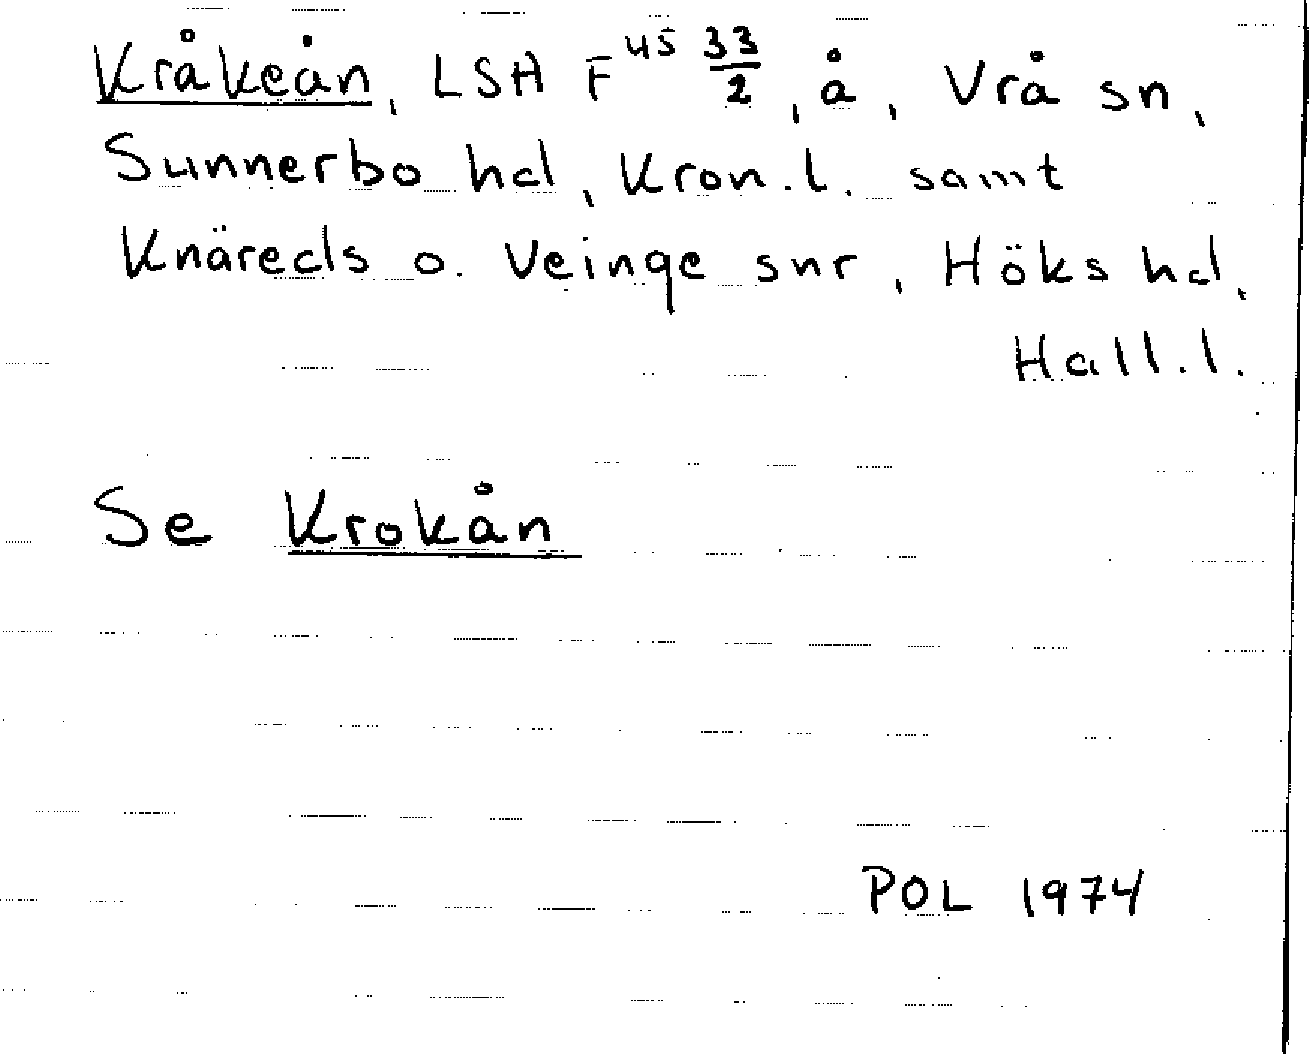 Kråkeån, LSH F⁴⁵ 33/2, å, Vrå sn,
Sunnerbo hd, Kron.l. samt
Knäreds o. Veinge snr, Höks hd,
Hall.l.
Se Krokån
POL 1974